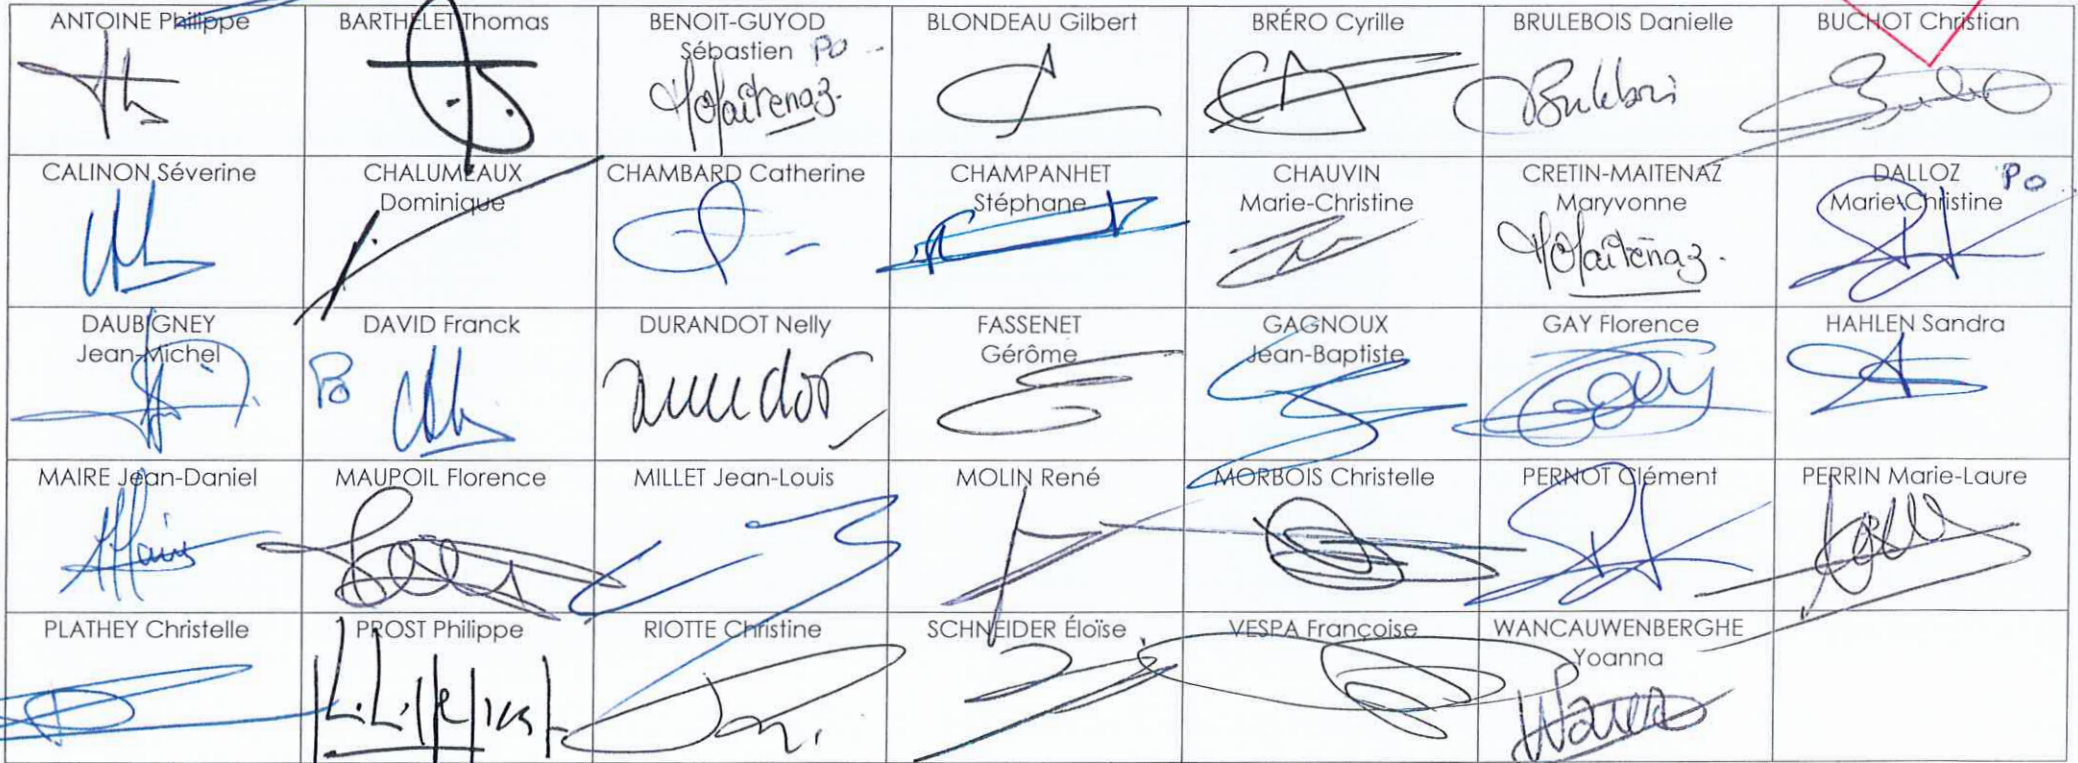 ANTOINE Philippe
BARTHELET Thomas
BENOIT-GUYOD
Sébastien PO
Maitenaz.
BLONDEAU Gilbert
BRÉRO Cyrille
BRULEBOIS Danielle
Brulebois
BUCHOT Christian
CALINON Séverine
CHALUMEAUX
Dominique
CHAMBARD Catherine
CHAMPANHET
Stéphane
CHAUVIN
Marie-Christine
CRETIN-MAITENAZ
Maryvonne
Maitenaz.
DALLOZ PO
Marie-Christine
DAUBIGNEY
Jean-Michel
DAVID Franck
PO
DURANDOT Nelly
FASSENET
Gérôme
GAGNOUX
Jean-Baptiste
GAY Florence
Gay
HAHLEN Sandra
MAIRE Jean-Daniel
MAUPOIL Florence
MILLET Jean-Louis
MOLIN René
MORBOIS Christelle
PERNOT Clément
PERRIN Marie-Laure
PLATHEY Christelle
PROST Philippe
RIOTTE Christine
SCHNEIDER Éloïse
VESPA Françoise
WANCAUWENBERGHE
Yoanna